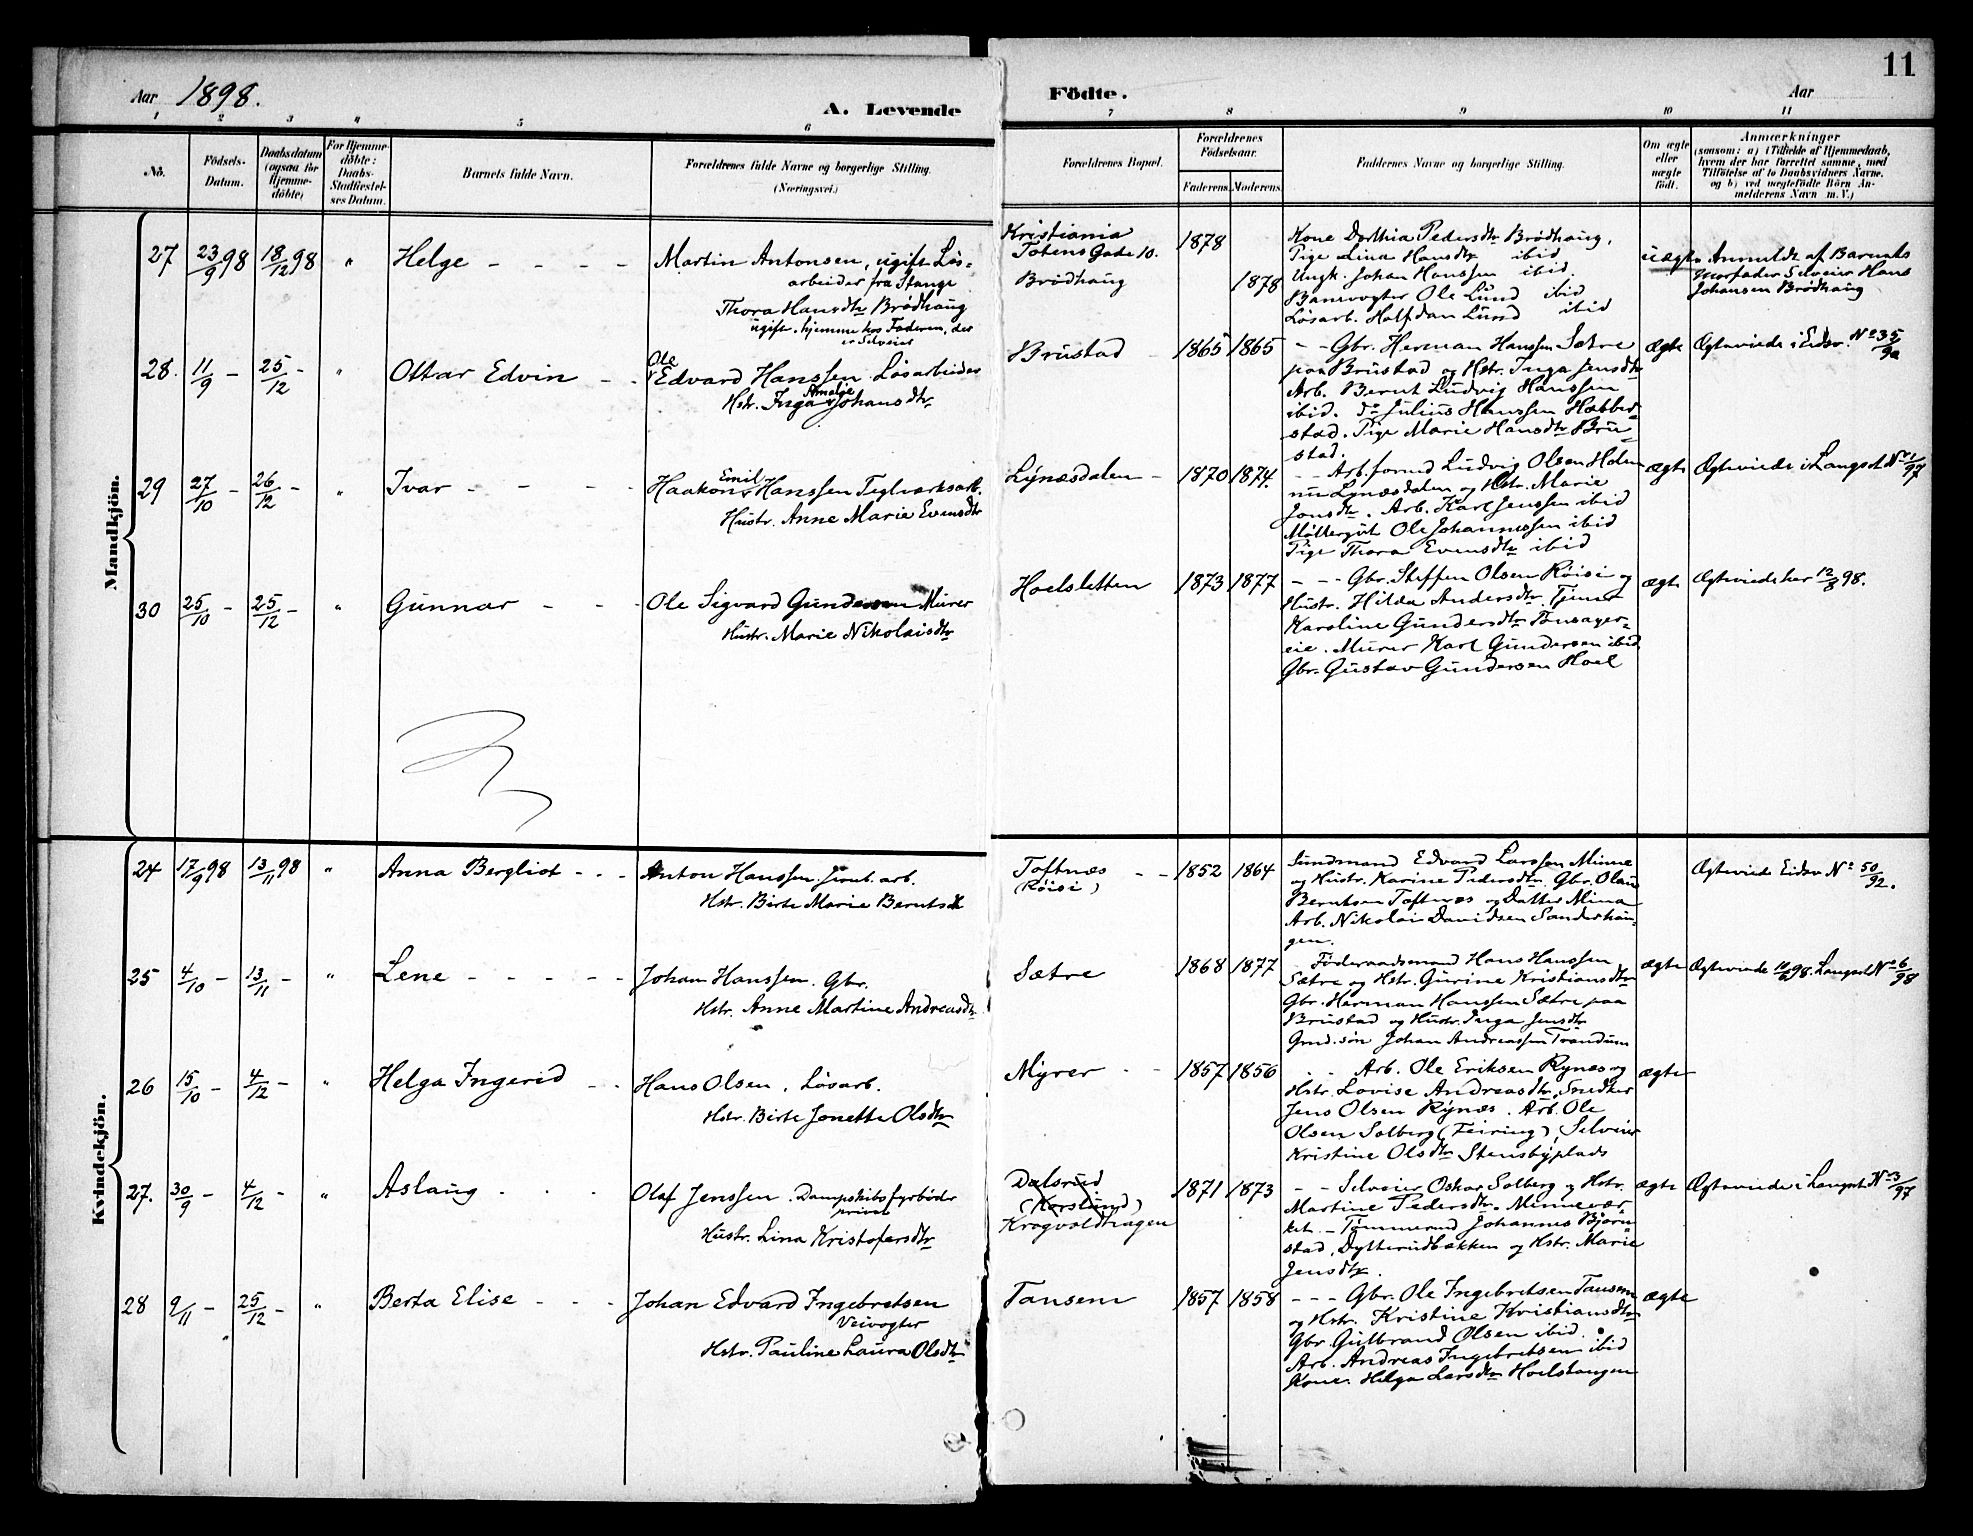 11
Aar 1898.
A. Levende
Födte.
Aar
1 2 3 4 5 6 7 8 9 10 11
No.
Födsels-
Datum.
Daabsdatum
(ogsaa for
Hjemme-
döbte)
For Hjemme-
döbte:
Daabs-
Stadfæstel-
ses Datum.
Barnets fulde Navn.
Forældrenes fulde Navne og borgerlige Stilling.
(Næringsvei.)
Forældrenes Bopæl.
Forældrenes
Födselsaar.
Faderens. Moderens.
Faddernes Navne og borgerlige Stilling.
Om ægte
eller
uægte
födt.
Anmærkninger
(saasom: a) i Tilfælde af Hjemmedaab,
hvem der har forrettet samme, med
Tilföielse af to Daabsvidners Navne.
og b) ved uægtefödte Börn An-
melderens Navn m. V.)
Mandkjön.
27 23/9 98 18/12 98 " Helge - - - -
Martin Antonsen, ugift Løs-
arbeider fra Stange
Thora Hansdtr Brødhaug
ugift. hjemme hos Faderen, der
er Selveier
Kristiania
Totens Gade 10.
Brødhaug
1878
1878
Kone Dorthia Pedersdtr Brødhaug,
Pige Lina Hansdtr ibid
Ungk. Johan Hanssen ibid.
Banevogter Ole Lund ibid
Løsarb. Halfdan Lund ibid
uægte
Anmeldt af Barnets
Morfader Selveier Hans
Johansen Brødhaug
28. 11/9 - 25/12 - " Ottar Edvin - -
Ole
Edvard Hanssen Løsarbeider
Hstr. Inga Amalie Johansdtr.
Brustad - 1865 1865
- - Gbr. Herman Hanssen Sætre
paa Brustad og Hstr. Inga Jensdtr
Arb. Bernt Ludvig Hanssen
ibid. do Julius Hanssen Hæbbed-
stad. Pige Marie Hansdtr Bru-
stad.
ægte Ægteviede i Eidsv. No 35/92
29 27/10 - 26/12 - " Ivar - - - -
Emil
Haakon Hanssen Teglværksarb.
Hustr. Anne Marie Evensdtr
Lynæsdalen - 1870 1874.
- - Arb. forud Ludvig Olsen Holm
nu Lynæsdalen og Hstr. Marie
Jonsdtr. Arb. Karl Jenssen ibid
Møllergut Ole Johannessen ibid
Pige Thora Evensdtr ibid
ægte Ægteviede i Langset No 1/97
30 25/10 - 25/12 - " Gunnar - - -
Ole Sigvard Gundersen Murer
Hustr. Marie Nikolaisdtr
Hoelsletten 1873 1877
- - Gbr. Steffen Olsen Røisi og
Hustr. Hilda Andersdtr. Tjener
Karoline Gundersdtr
eie. Murer Karl Gundersen ibid
Gbr. Gustav Gundersen Hoel
ægte Ægteviede her 12/8 98.
Kvindekjön.
24 17/9 98 13/11 98 " Anna Bergliot - - -
Anton Hanssen. Jernb. arb.
Hstr. Birte Marie Berntsdtr
Toftnæs - -
(Røisi)
1852 1864
Sundmand Edvard Larssen Minne
og Hustr. Karine Pedersdtr. Gbr. Olaus
Berntsen Toftnæs og Datter Mina
Arb. Nikolai Davidsen Sanderhau-
gen.
Ægteviede Eidsv No 50/92.
25 4/10 - 13/11 - " Lene - - - - -
Johan Hanssen. Gbr.
Hstr. Anne Martine Andreasdtr.
Sætre 1868 1877
Föderaadsmand Hans Hanssen
Sætre og Hstr. Gurine Kristiansdtr
Gbr. Herman Hanssen Sætre paa
Brustad og Hustr. Inga Jensdtr
Grd. søn Johan Andreassen Trandum
ægte Ægteviede 98. Langset No 6/98
26 15/10 - 4/12 - " Helga Ingerid - -
Hans Olsen. Løsarb.
Hstr. Birte Jonette Olsdtr
Myrer - - 1857 1856
- - Arb. Ole Eriksen Rynæs og
Hstr. Lovise Andreasdtr, Snedker
Jens Olsen Rynæs. Arb. Ole
Olsen Solberg (Feiring), Selveier
Kristine Olsdtr Stensbyplads
ægte
27. 30/9 - 4/12 - " Aslaug - - -
Olaf Jenssen. Dampskibsfyrbøder
Hustr. Lina Kristofersdtr
Dalsrud
(Korslund)
Krogvoldhagen
1871 1873
- - Selveier Oskar Solberg og Hstr.
Martine Pedersdtr. Minnevær-
ket - Tømmermd Johannes Bjørn-
stad, Dytterudbakken og Hstr. Marie
Jensdtr.
ægte Ægteviede i Langset No 3/97
28 9/11 - 25/12 - " Berta Elise - - -
Johan Edvard Ingebretsen
Veivogter
Hstr. Pauline Laura Olsdtr
Tansem 1857 1858
- - - Gbr. Ole Ingebretsen Tansem
og Hstr. Kristine Kristiansdtr
Gbr. Gulbrand Olsen ibid.
Arb. Andreas Ingebretsen ibid
Kone. Helga Larsdtr Hoelshaugen
ægte